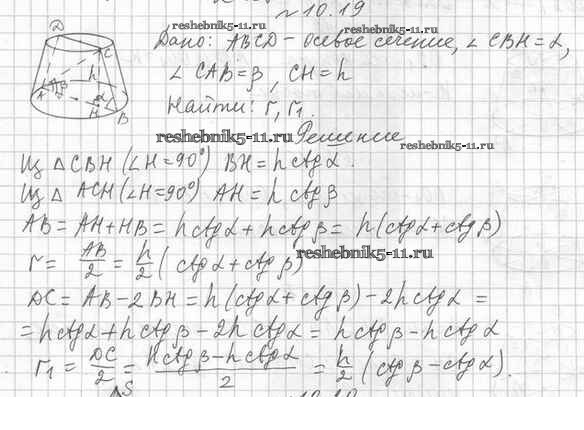 №10.19
reshebnik5-11.ru
Дано: ABCD - осевое сечение, ∠CBH = α,
∠CAB = β, CH = h
Найти: r, r₁.
D
C
h
A
β
α
H
B
reshebnik5-11.ru
Решение
reshebnik5-11.ru
Из △CBH (∠H = 90°) BH = h ctg α.
Из △ ACH (∠H = 90°) AH = h ctg β
AB = AH + HB = h ctg α + h ctg β = h (ctg α + ctg β)
r = AB/2 = h/2 (ctg α + ctg β)
reshebnik5-11.ru
DC = AB - 2BH = h (ctg α + ctg β) - 2h ctg α =
= h ctg α + h ctg β - 2h ctg α = h ctg β - h ctg α
r₁ = DC/2 = (h ctg β - h ctg α)/2 = h/2 (ctg β - ctg α).
S